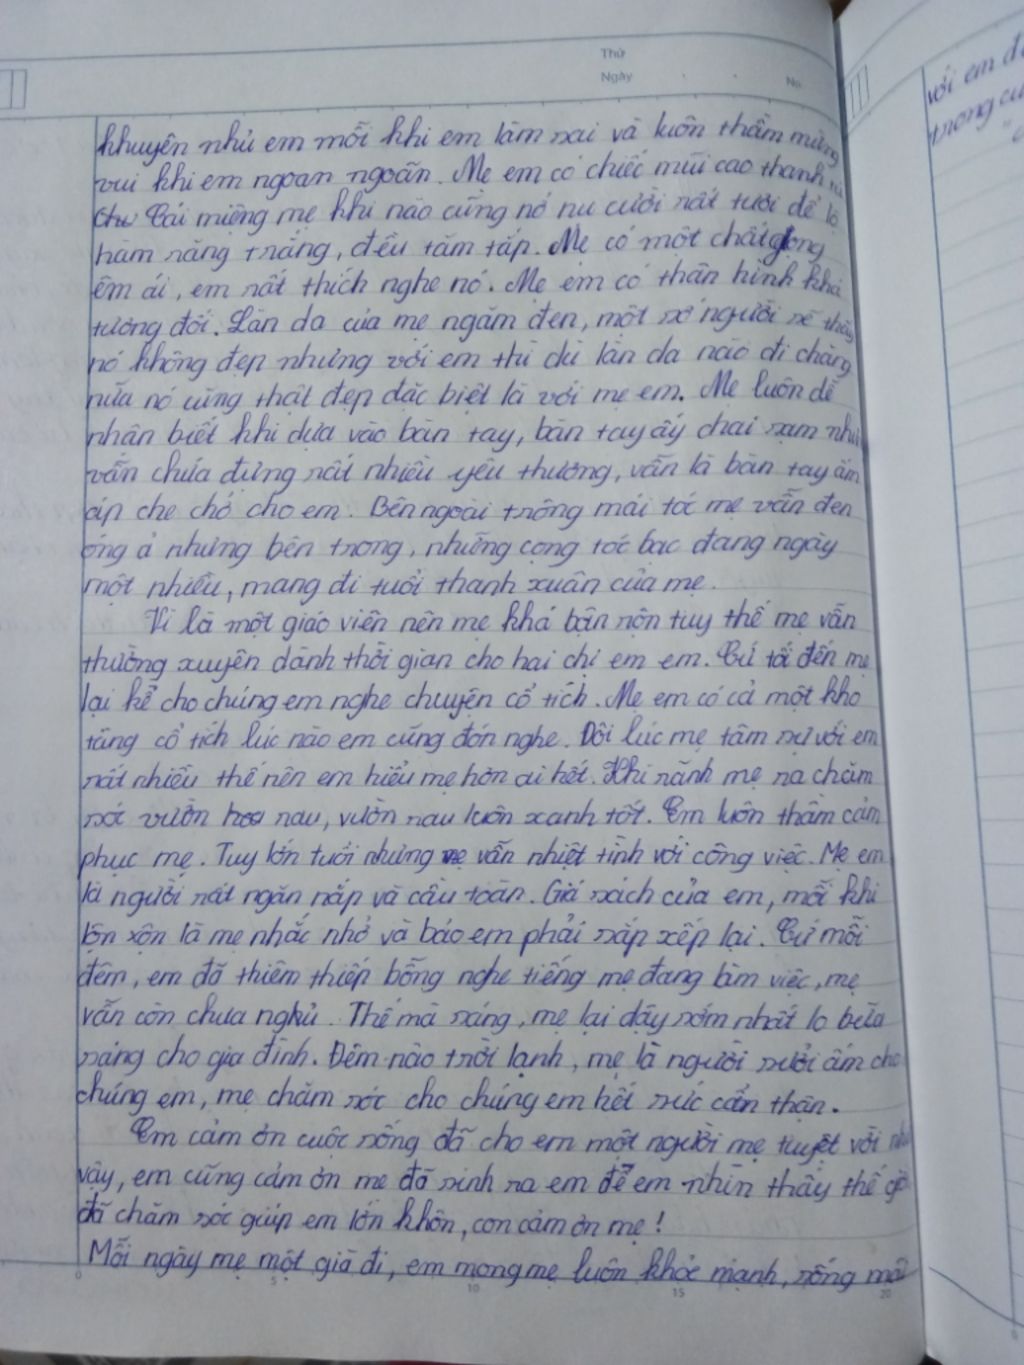 Thứ
Ngày
No
khuyên nhủ em mỗi khi em làm sai và luôn thầm mừng
vui khi em ngoan ngoãn. Mẹ em có chiếc mũi cao thanh
Cái miệng mẹ khi nào cũng nở nụ cười rất tươi để lộ
hàm răng trắng, đều tăm tắp. Mẹ có một chất giọng
êm ái, em rất thích nghe nó. Mẹ em có thân hình khá
tương đối. Làn da của mẹ ngăm đen, một số người sẽ thấy
nó không đẹp nhưng với em thì dù làn da nào đi chăng
nữa nó cũng thật đẹp đặc biệt là với mẹ em. Mẹ luôn dễ
nhận biết khi dựa vào bàn tay, bàn tay ấy chai sạm như
vẫn chứa đựng rất nhiều yêu thương, vẫn là bàn tay ấm
áp che chở cho em. Bên ngoài trông mái tóc mẹ vẫn đen
óng ả nhưng bên trong, những cọng tóc bạc đang ngày
một nhiều, mang đi tuổi thanh xuân của mẹ.
Vì là một giáo viên nên mẹ khá bận rộn tuy thế mẹ vẫn
thường xuyên dành thời gian cho hai chị em em. Cứ tối đến mẹ
lại kể cho chúng em nghe chuyện cổ tích. Mẹ em có cả một kho
tàng cổ tích lúc nào em cũng đón nghe. Đôi lúc mẹ tâm sự với em
rất nhiều thế nên em hiểu mẹ hơn ai hết. Khi rảnh mẹ ra chăm
sóc vườn rau, vườn rau luôn xanh tốt. Em luôn thầm cảm
phục mẹ. Tuy lớn tuổi nhưng mẹ vẫn nhiệt tình với công việc. Mẹ em
là người rất ngăn nắp và cầu toàn. Giá sách của em, mỗi khi
lộn xộn là mẹ nhắc nhở và bảo em phải sắp xếp lại. Cứ mỗi
đêm, em đã thiêm thiếp bỗng nghe tiếng mẹ đang làm việc, mẹ
vẫn còn chưa ngủ. Thế mà sáng, mẹ lại dậy sớm nhất lo bữa
sáng cho gia đình. Đêm nào trời lạnh, mẹ là người sưởi ấm cho
chúng em, mẹ chăm sóc cho chúng em hết sức cẩn thận.
Em cảm ơn cuộc sống đã cho em một người mẹ tuyệt vời như
vậy, em cũng cảm ơn mẹ đã sinh ra em để em nhìn thấy thế giới
đã chăm sóc giúp em lớn khôn, con cảm ơn mẹ!
Mỗi ngày mẹ một già đi, em mong mẹ luôn khỏe mạnh, sống mãi
0 5 10 15 20
với em
trong